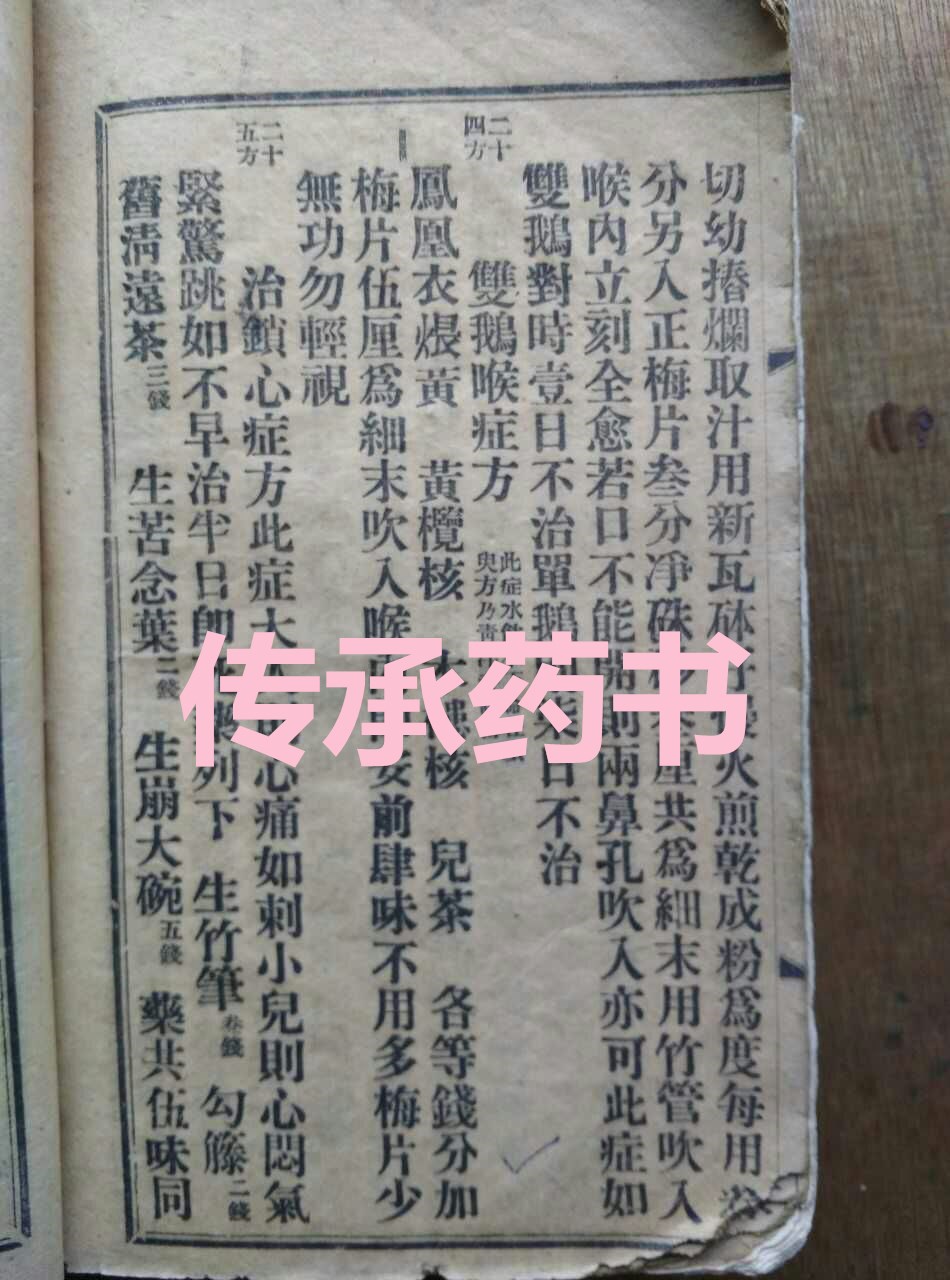 切幼摏爛取汁用新瓦砵火煎乾成粉爲度每用
分另入正梅片叁分凈硃厘共爲細末用竹管吹入
喉內立刻全愈若口不能開則兩鼻孔吹入亦可此症如
雙鵝對時壹日不治單鵝日不治
二十四方
雙鵝喉症方 此症水 方乃
鳳凰衣煨黃 黃欖核 核 兒茶 各等錢分加
梅片伍厘爲細末吹入喉安前肆味不用多梅片少
無功勿輕視
二十五方
治鎖心症方此症大心痛如刺小兒則心悶氣
緊驚跳如不早治半日即列下 生竹筆叁錢 勾籐二錢
舊淸遠茶三錢 生苦念葉二錢 生崩大碗五錢 藥共伍味同
传承药书